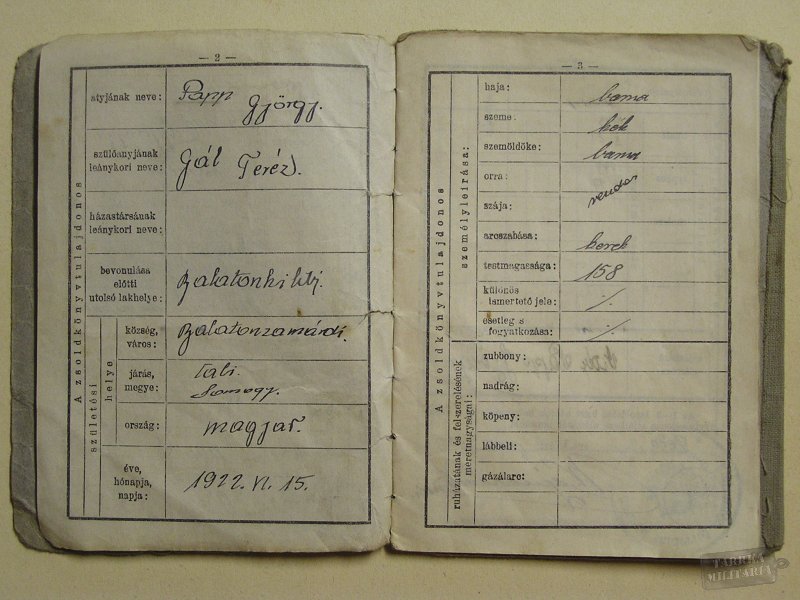 — 2 —
A zsoldkönyvtulajdonos
atyjának neve: Papp György.
szülőanyjának
leánykori neve: Gál Teréz.
házastársának
leánykori neve:
bevonulása
előtti
utolsó lakhelye: Balatonkiliti.
születési
helye
község,
város: Balatonzamárdi.
járás,
megye: tabi.
Somogy.
ország: magyar.
éve,
hónapja,
napja: 1922. VI. 15.
— 3 —
A zsoldkönyvtulajdonos
személyleírása:
haja: barna
szeme: kék
szemöldöke: barna
orra: rendes
szája:
arcszabása: kerek
testmagassága: 158
különös
ismertető jele: ·/·
esetleg s
fogyatkozása:
ruházatának és felszerelésének
méretnagyságai:
zubbony:
nadrág:
köpeny:
lábbeli:
gázálarc:
TARKA
MILITARIA